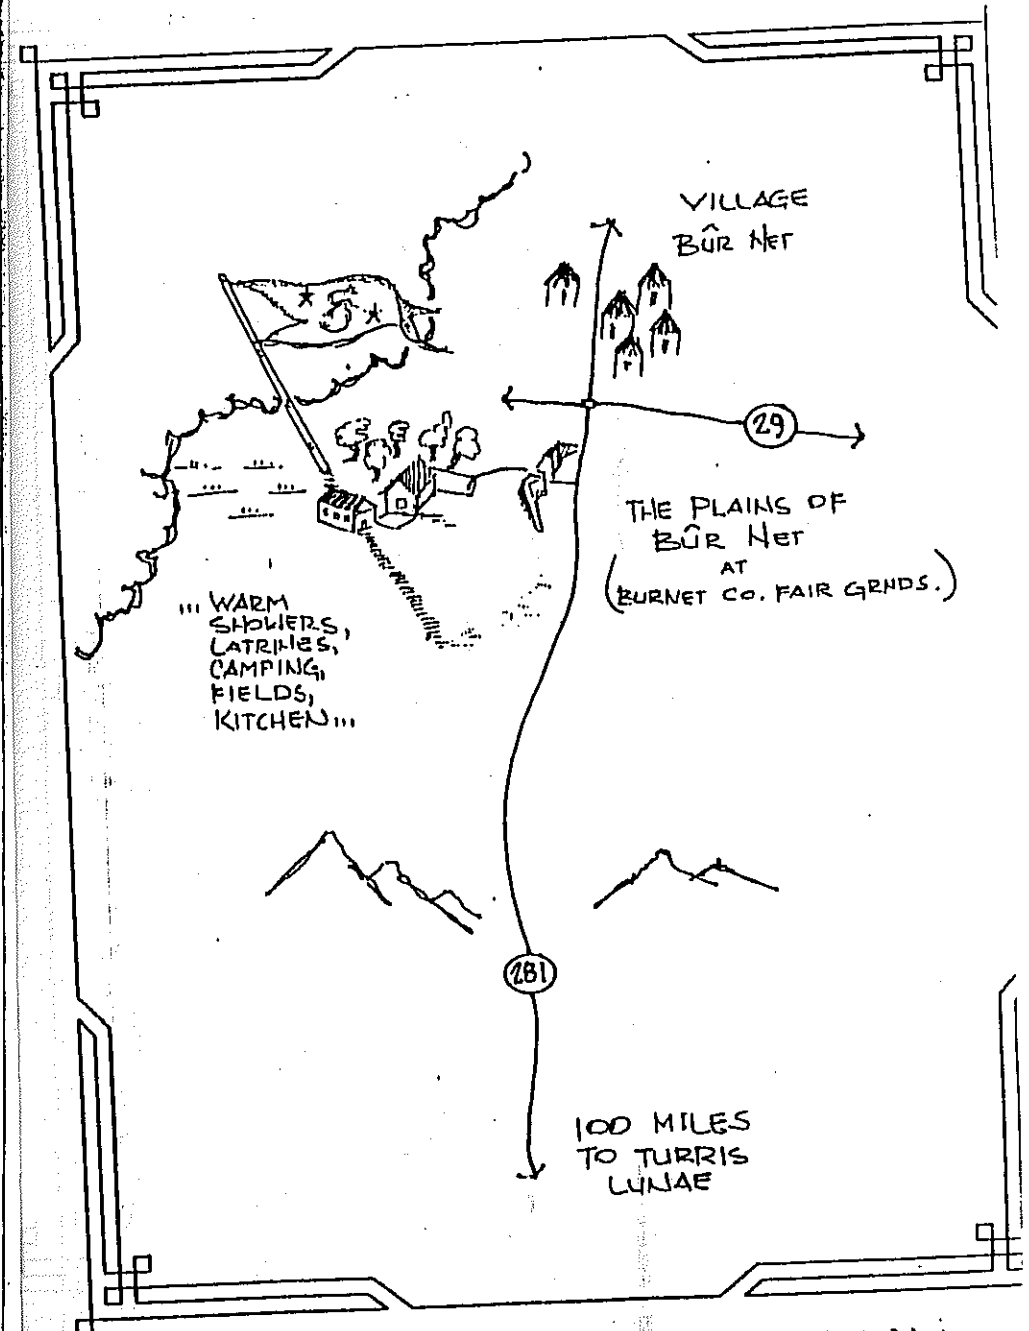 VILLAGE
BÛR NET
29
THE PLAINS OF
BÛR NET
AT
(BURNET CO. FAIR GRNDS.)
... WARM
SHOWERS,
LATRINES,
CAMPING,
FIELDS,
KITCHEN...
281
100 MILES
TO TURRIS
LUNAE